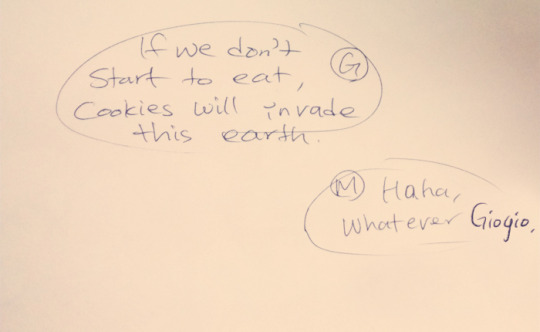 If we don't G
Start to eat,
Cookies will invade
this earth.
M Haha,
Whatever Giogio.